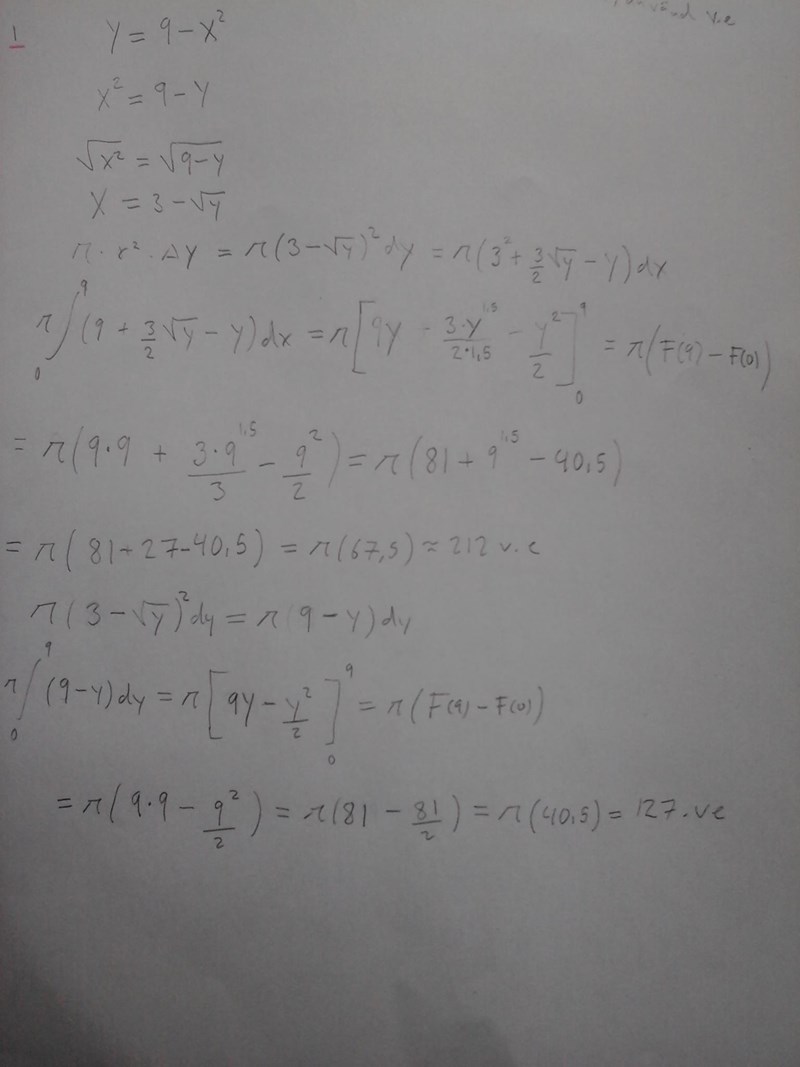 v.e
1 y = 9 - x²
x² = 9 - y
√x² = √9-y
x = 3 - √y
π · r² · Δy = π(3 - √y)² dy = π(3² + 3/2 √y - y) dx
π ∫₀⁹ (9 + 3/2 √y - y) dx = π [9y - 3·y^1,5 / 2·1,5 - y²/2]₀⁹ = π(F(9) - F(0))
= π(9·9 + 3·9^1,5 / 3 - 9²/2) = π(81 + 9^1,5 - 40,5)
= π(81 + 27 - 40,5) = π(67,5) ≈ 212 v.e
π(3 - √y)² dy = π(9 - y) dy
π ∫₀⁹ (9 - y) dy = π [9y - y²/2]₀⁹ = π(F(9) - F(0))
= π(9·9 - 9²/2) = π(81 - 81/2) = π(40,5) = 127.ve